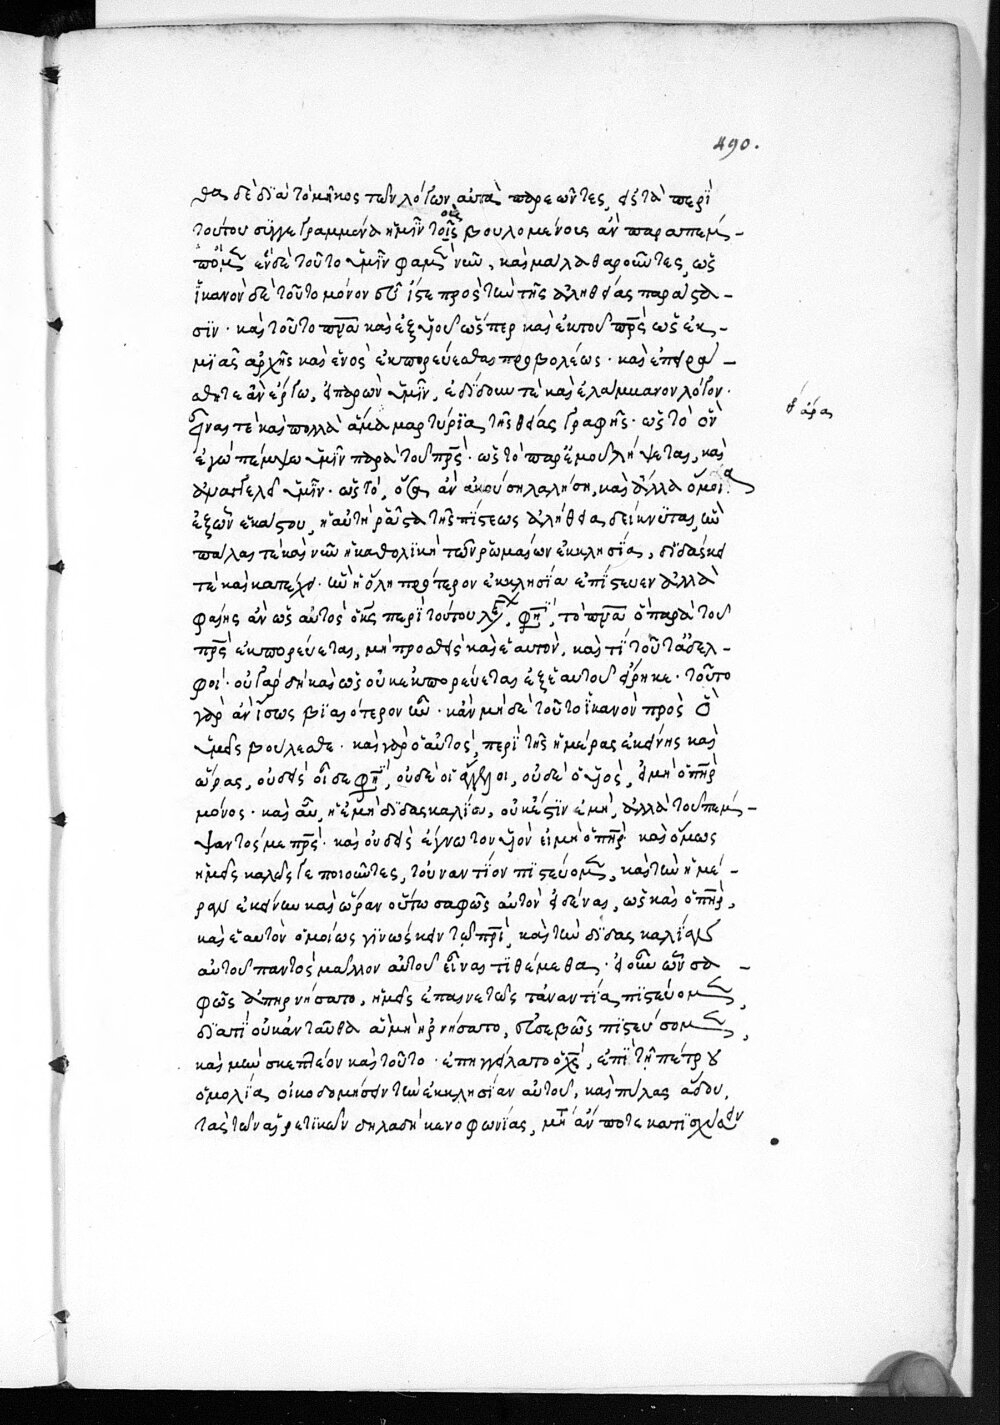 490.
θα δὲ διὰ τὸ μῆκος τῶν λόγων αὐτὰ παρεῶντες, εἰς τὰ περὶ
τούτου συγγεγραμμένα ἡμῖν τοῖς βουλομένοις ἂν παραπεμ-
ἓν δὲ τοῦτο ὑμῖν φαμὲν νῦν, καὶ μάλα θαροῦντες, ὡς
ἱκανὸν δὲ τοῦτο μόνον πρὸς τὴν τῆς ἀληθείας παράστα-
σιν· καὶ τοῦτο πνα καὶ ἐξ υἱοῦ ὥσπερ καὶ ἐκ τοῦ πρς ὡς ἐκ
μιᾶς ἀρχῆς καὶ ἑνὸς ἐκπορεύεσθαι προβολέως· καὶ
λόγον·
τὲ καὶ πολλὰ ἅμα μαρτυρία τῆς θείας γραφῆς· ὡς τὸ ὃν
ἐγὼ πέμψω ὑμῖν παρὰ τοῦ πρς· ὡς τὸ παρ' ἐμοῦ λήψεται, καὶ
ἀναγγελεῖ ὑμῖν· ὡς τὸ, ὅσα ἂν ἀκούση λαλήση, καὶ ἄλλα ὅμοια
ἐξ ὧν ἑκάστου, ἡ αὐτὴ τῆς πίστεως ἀλήθεια δείκνυται, ἣν
πάλαι τὲ καὶ νῦν ἡ καθολικὴ τῶν ῥωμαίων ἐκκλησία, διδάσκει
τὲ καὶ κατέχει· ἣν ἡ ὅλη πρότερον ἐκκλησία ἐπίστευεν ἀλλὰ
φαίης ἂν ὡς αὐτὸς ὁ κς περὶ τούτου φησὶ, τὸ πνα ὃ παρὰ τοῦ
πρς ἐκπορεύεται, μὴ προσθεὶς καὶ ἑαυτὸν, καὶ τί τοῦτο ἀδελ-
φοί· οὐ γὰρ δὴ καὶ ὡς οὐκ ἐκπορεύεται ἐξ ἑαυτοῦ εἴρηκε· τοῦτο
γὰρ ἂν ἴσως βιαιότερον ἦν· κἂν μὴ δὲ τοῦτο ἱκανὸν πρὸς ὃ
ὑμεῖς βούλεσθε· καὶ γὰρ ὁ αὐτὸς, περὶ τῆς ἡμέρας ἐκείνης καὶ
ὥρας, οὐδεὶς οἶδε φησὶ, οὐδὲ οἱ ἄγγελοι, οὐδὲ ὁ υἱὸς, εἰ μὴ ὁ πηρ
μόνος· καὶ αὖ, ἡ ἐμὴ διδασκαλία, οὐκ ἔστιν ἐμὴ, ἀλλὰ τοῦ πέμ-
ψαντός με πρς· καὶ οὐδεὶς ἔγνω τὸν υἱὸν εἰ μὴ ὁ πηρ· καὶ ὅμως
ἡμεῖς καλῶς γε ποιοῦντες, τοὐναντίον πιστεύομεν, καὶ τὴν ἡμέ-
ραν ἐκείνην καὶ ὥραν οὕτω σαφῶς αὐτὸν εἰδέναι, ὡς καὶ ὁ πηρ,
καὶ ἑαυτὸν ὁμοίως γινώσκειν τῶ πρὶ, καὶ τὴν διδασκαλίαν
αὐτοῦ παντὸς μᾶλλον αὐτοῦ εἶναι τιθέμεθα· εἰ οὖν ὧν σα-
φῶς ἀπηρνήσατο, ἡμεῖς ἐπαινετῶς τἀναντία πιστεύομεν,
διατί οὐκ ἀνταῦθα ἃ μὴ ἠρνήσατο, εὐσεβῶς πιστεύσομεν,
καὶ μὴν σκεπτέον καὶ τοῦτο· ἐπηγγείλατο ὁ χς, ἐπὶ τῆ πέτρου
ὁμολία οἰκοδομήσειν τὴν ἐκκλησίαν αὐτοῦ, καὶ πύλας ἅδου,
τὰς τῶν αἱρετικῶν δηλαδὴ κενοφωνίας, μὴ ἄν ποτε κατισχύσειν